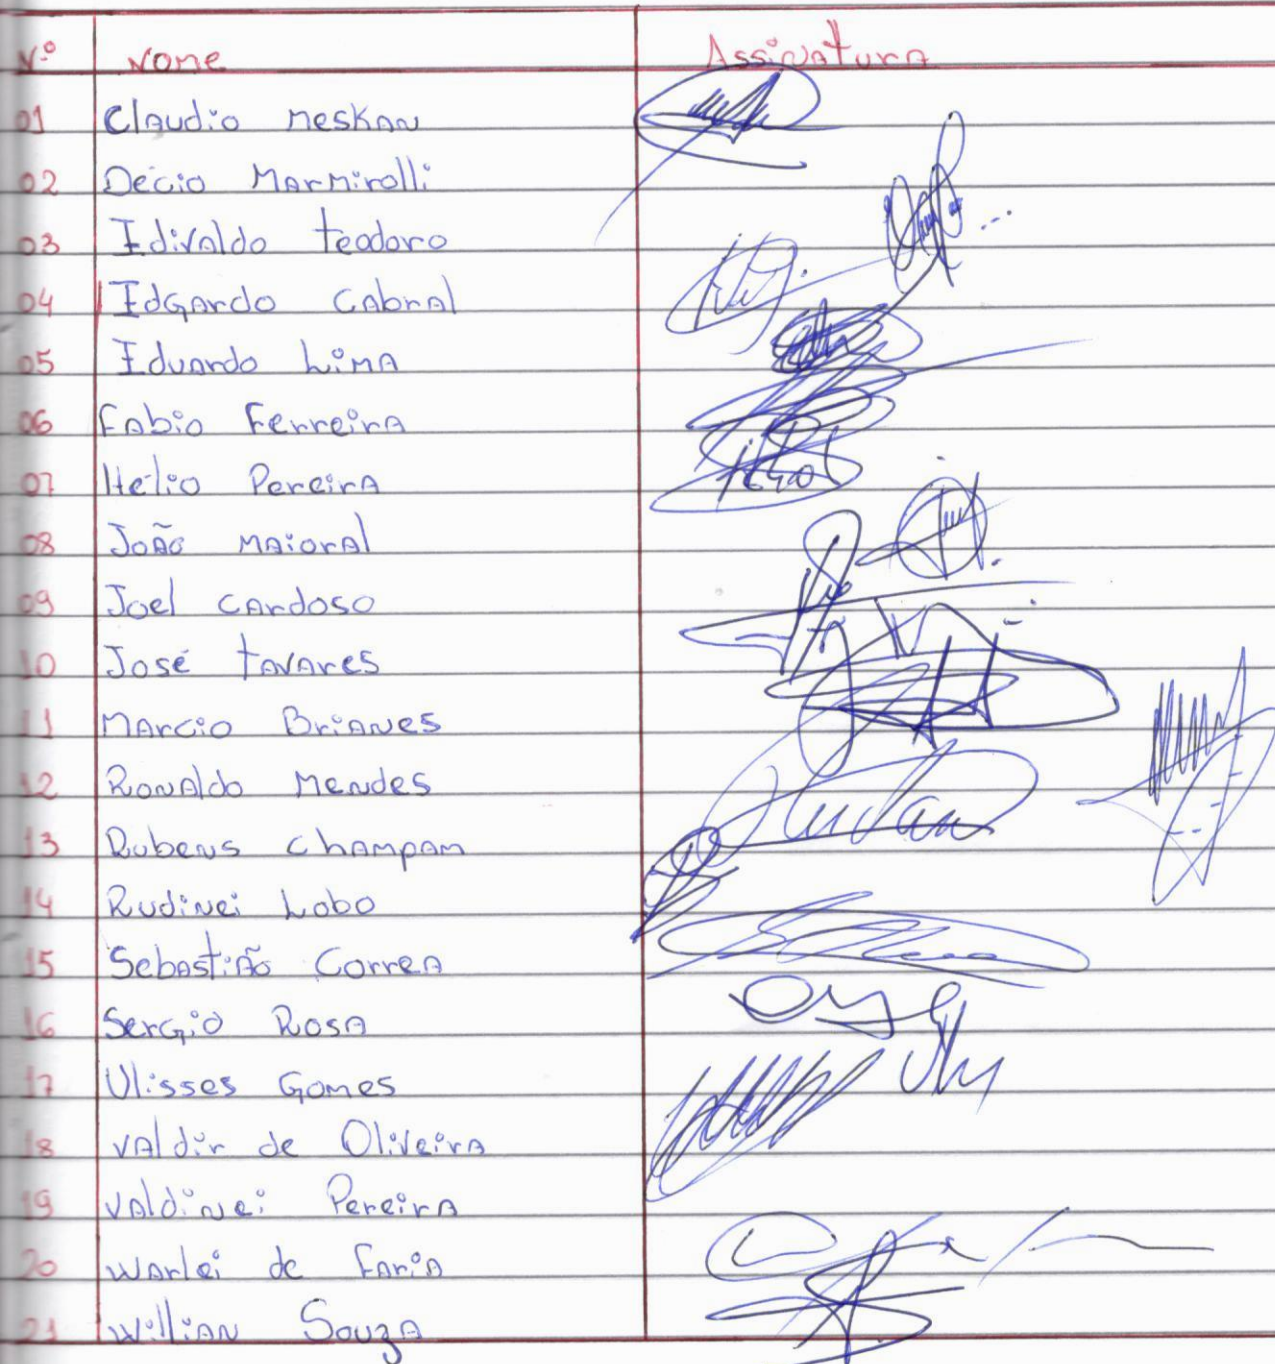 Nº Nome Assinatura
01 Claudio Meskan
02 Décio Marmirolli
03 Edivaldo Teodoro
04 Edgardo Cabral
05 Eduardo Lima
06 Fabio Ferreira
07 Hélio Pereira
08 João Maioral
09 Joel Cardoso
10 José Tavares
11 Marcio Brianes
12 Ronaldo Mendes
13 Rubens Champam
14 Rudinei Lobo
15 Sebastião Correa
16 Sergio Rosa
17 Ulisses Gomes
18 Valdir de Oliveira
19 Valdinei Pereira
20 Warlei de Faria
21 Willian Souza